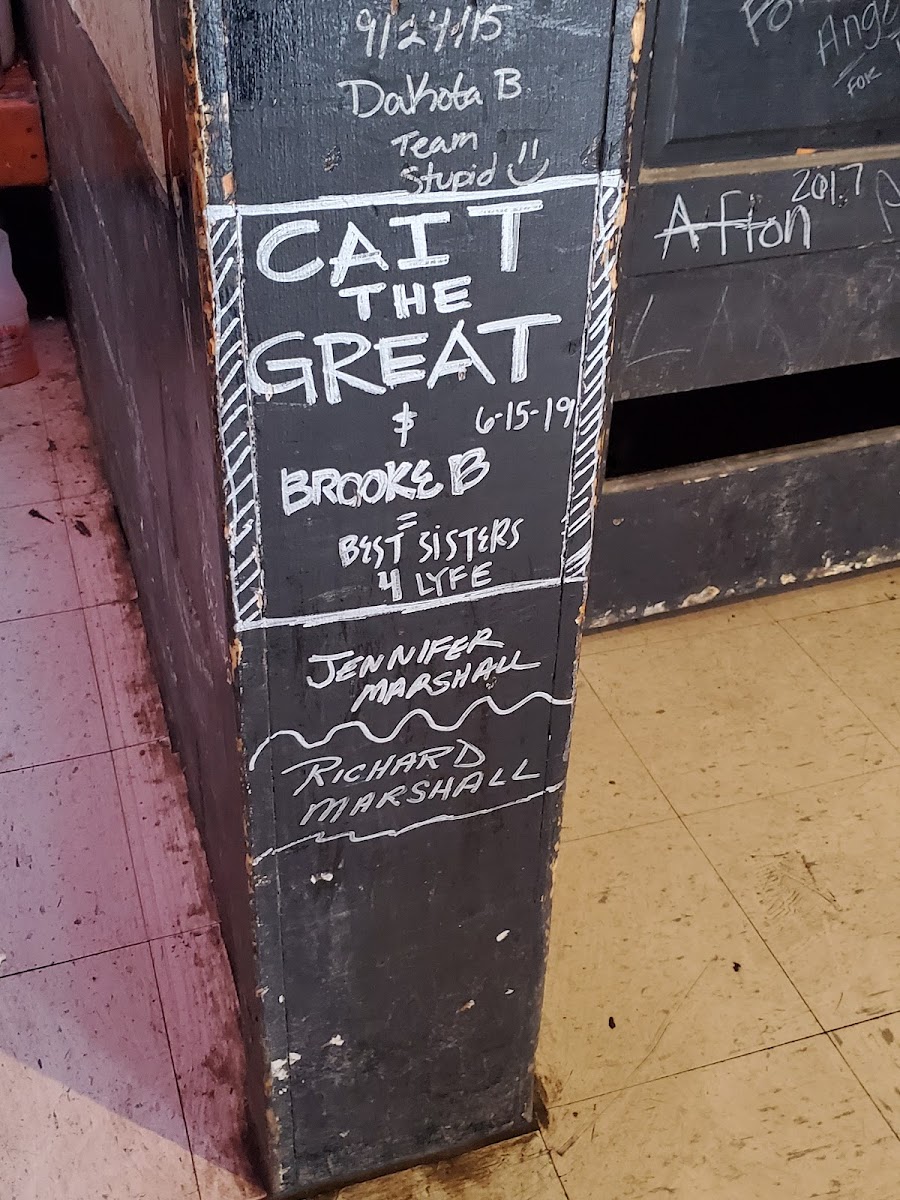 9/24/15
Dakota B
Team
Stupid
CAIT
THE
GREAT
& 6-15-19
BROOKE B
=
BEST SISTERS
4 LYFE
JENNIFER
MARSHALL
RICHARD
MARSHALL
FOR
2017
Afton